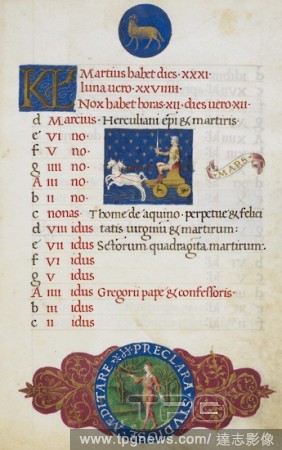 KL Martius habet dies · XXXI ·
luna uero · XXVIIII ·
Nox habet horas · XII · dies uero · XII ·
d Marcius · Herculiani epi & martiris
e VI no ·
f V no ·
g IIII no ·
A III no ·
b II no ·
MARS
c nonas Thome de aquino · perpetue & felici
d VIII idus tatis uirginũ & martirum :
e VII idus Sctorum quadragita martirum :
f VI idus
g V idus
A IIII idus Gregorii pape & confessoris ·
b III idus
c II idus
PRECLARA · STVDIOSE · MEDITARE ·
TPG
www.tpgnews.com/達志影像